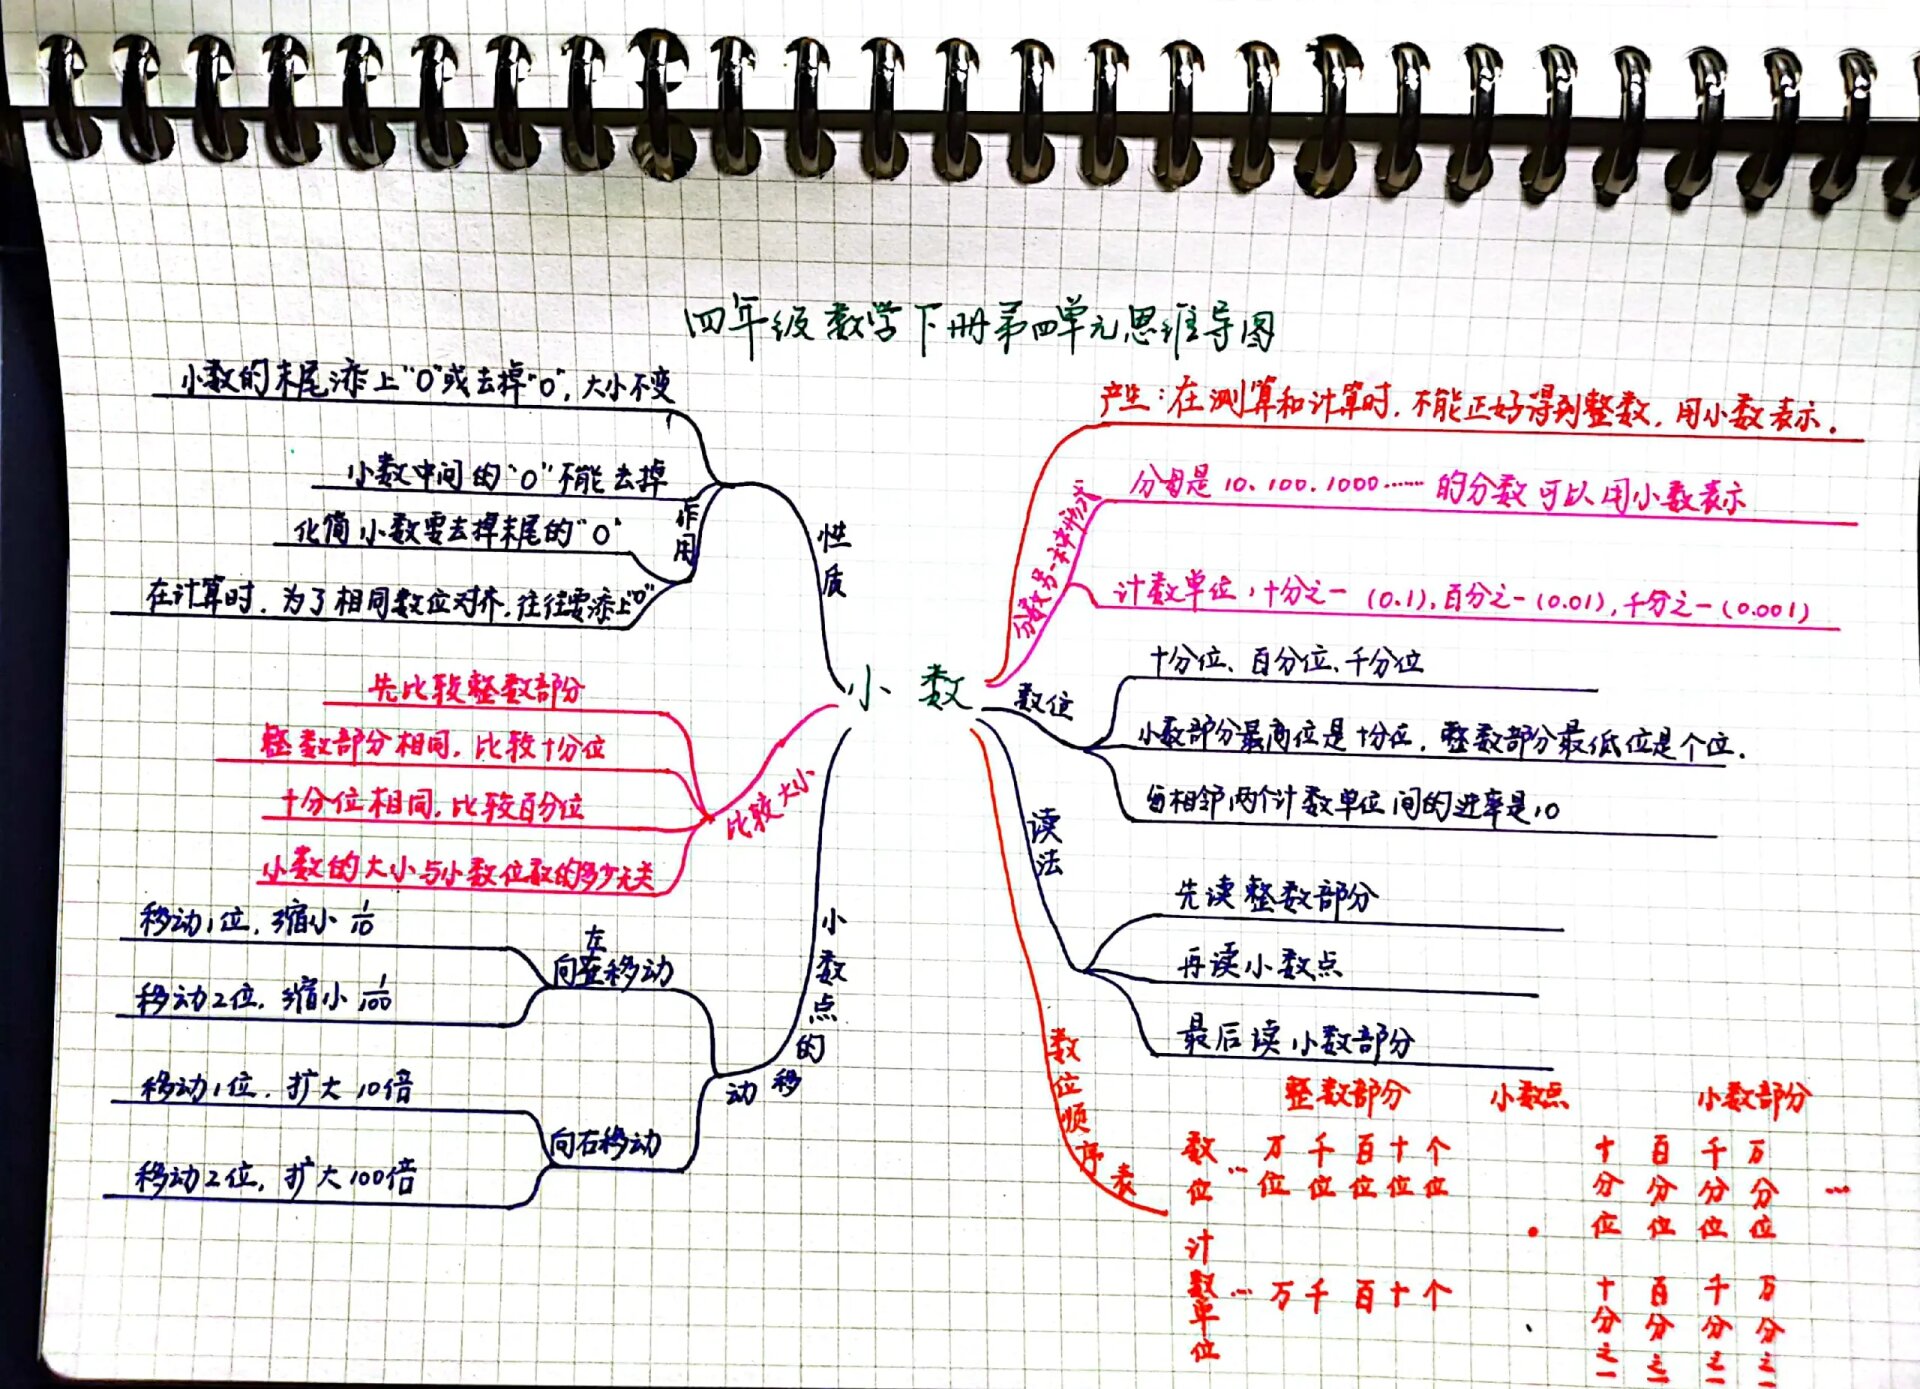 四年级数学下册第四单元思维导图
小数
性质
小数的末尾添上"0"或去掉"0",大小不变
作用
小数中间的"0"不能去掉
化简小数要去掉末尾的"0"
在计算时,为了相同数位对齐,往往要添上"0"
比较大小
先比较整数部分
整数部分相同,比较十分位
十分位相同,比较百分位
小数的大小与小数位数的多少无关
小数点的移动
左
向移动
移动1位,缩小 1/10
移动2位,缩小 1/100
向右移动
移动1位,扩大10倍
移动2位,扩大100倍
产生:在测算和计算时,不能正好得到整数,用小数表示.
分数另一种形式
分母是10、100、1000……的分数可以用小数表示
计数单位,十分之一(0.1),百分之一(0.01),千分之一(0.001)
数位
十分位、百分位、千分位
小数部分最高位是十分位,整数部分最低位是个位.
每相邻两个计数单位间的进率是10
读法
先读整数部分
再读小数点
最后读小数部分
数位顺序表
整数部分 小数点 小数部分
数位 … 万位 千位 百位 十位 个位 · 十分位 百分位 千分位 万分位 …
计数单位 … 万 千 百 十 个 . 十分之一 百分之一 千分之一 万分之一